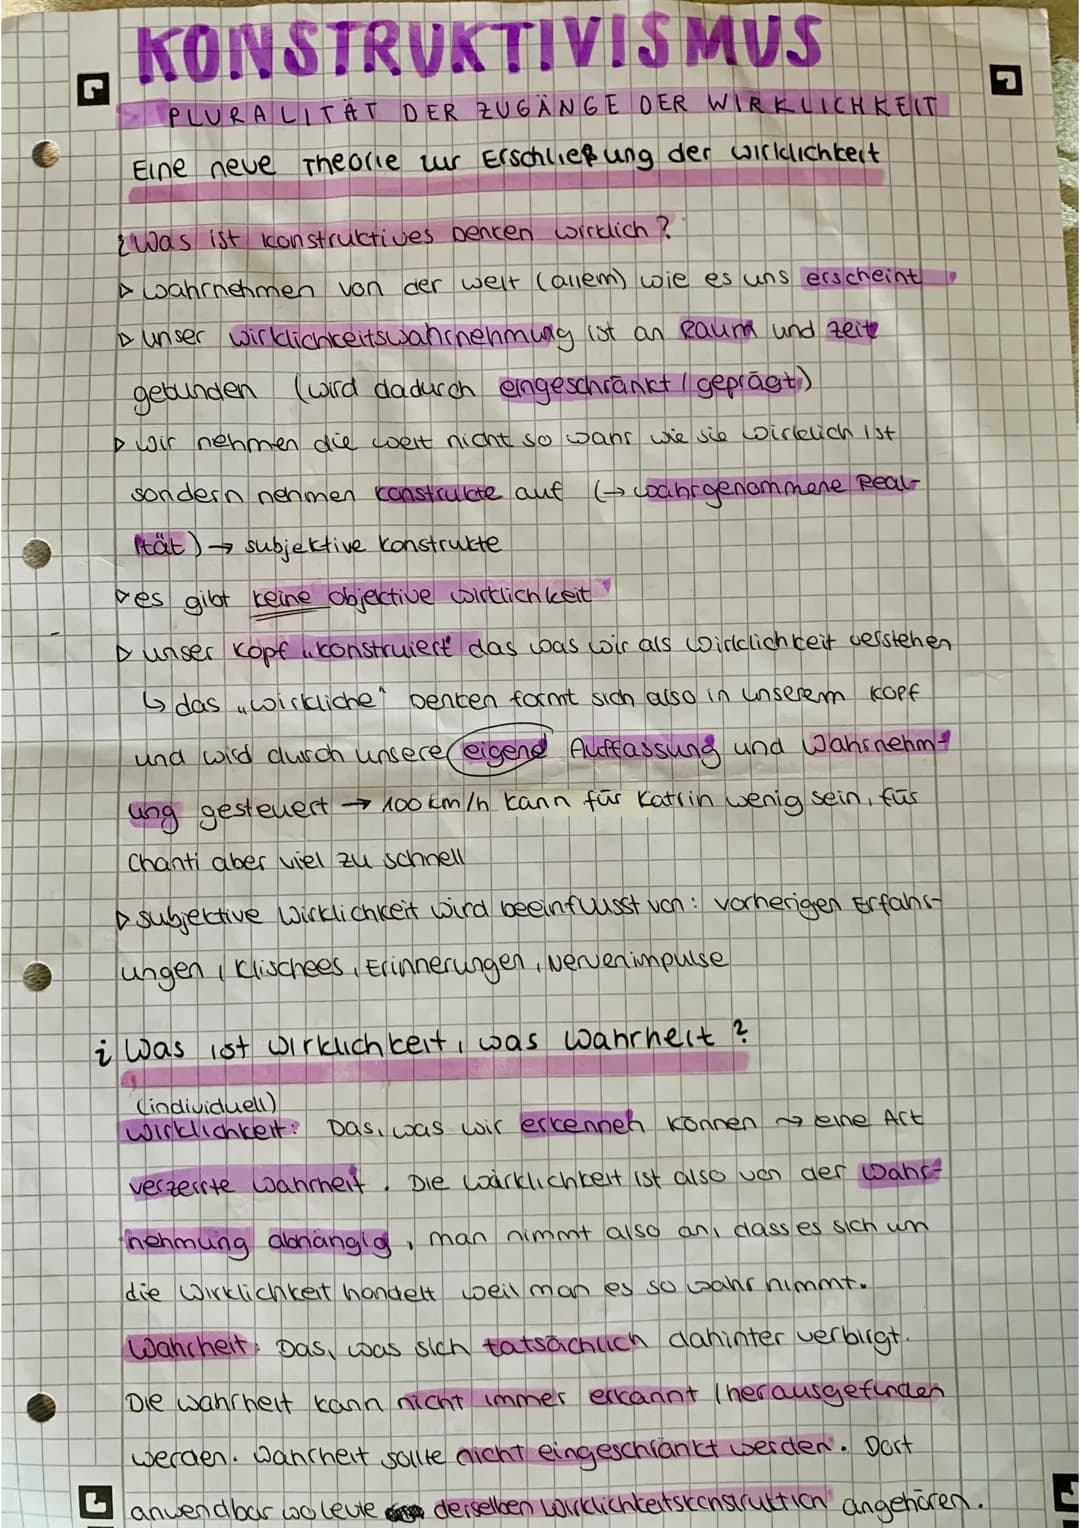 KONSTRUKTIVISMUS
PLURALITÄT DER ZUGÄNGE DER WIRKLICHKEIT
Eine neue Theorie zur Erschließung der Wirklichkeit
¿Was ist konstruktives Denken wirklich?
▷ wahrnehmen von der Welt (allem) wie es uns erscheint
▷ unser Wirklichkeitswahrnehmung ist an Raum und Zeit
gebunden (wird dadurch eingeschränkt / geprägt)
▷ Wir nehmen die Welt nicht so wahr wie sie wirklich ist
sondern nehmen Konstrukte auf (→ wahrgenommene Real-
ität) → subjektive Konstrukte
▷ es gibt keine objektive Wirklichkeit
▷ unser Kopf „konstruiert" das was wir als Wirklichkeit verstehen
↳ das „wirkliche" Denken formt sich also in unserem Kopf
und wird durch unsere eigene Auffassung und Wahrnehm-
ung gesteuert → 100 km/h kann für Katrin wenig sein, für
Chanti aber viel zu schnell
▷ subjektive Wirklichkeit wird beeinflusst von: vorherigen Erfahr-
ungen, Klischees, Erinnerungen, Nervenimpulse
¿ Was ist Wirklichkeit, was Wahrheit?
(individuell)
Wirklichkeit: Das, was wir erkennen können ⤳ eine Art
verzerrte Wahrheit. Die Wirklichkeit ist also von der Wahr-
nehmung abhängig, man nimmt also an, dass es sich um
die Wirklichkeit handelt weil man es so wahrnimmt.
Wahrheit: Das, was sich tatsächlich dahinter verbirgt.
Die Wahrheit kann nicht immer erkannt / herausgefunden
werden. Wahrheit sollte nicht eingeschränkt werden. Dort
anwendbar wo Leute derselben Wirklichkeitskonstruktion angehören.